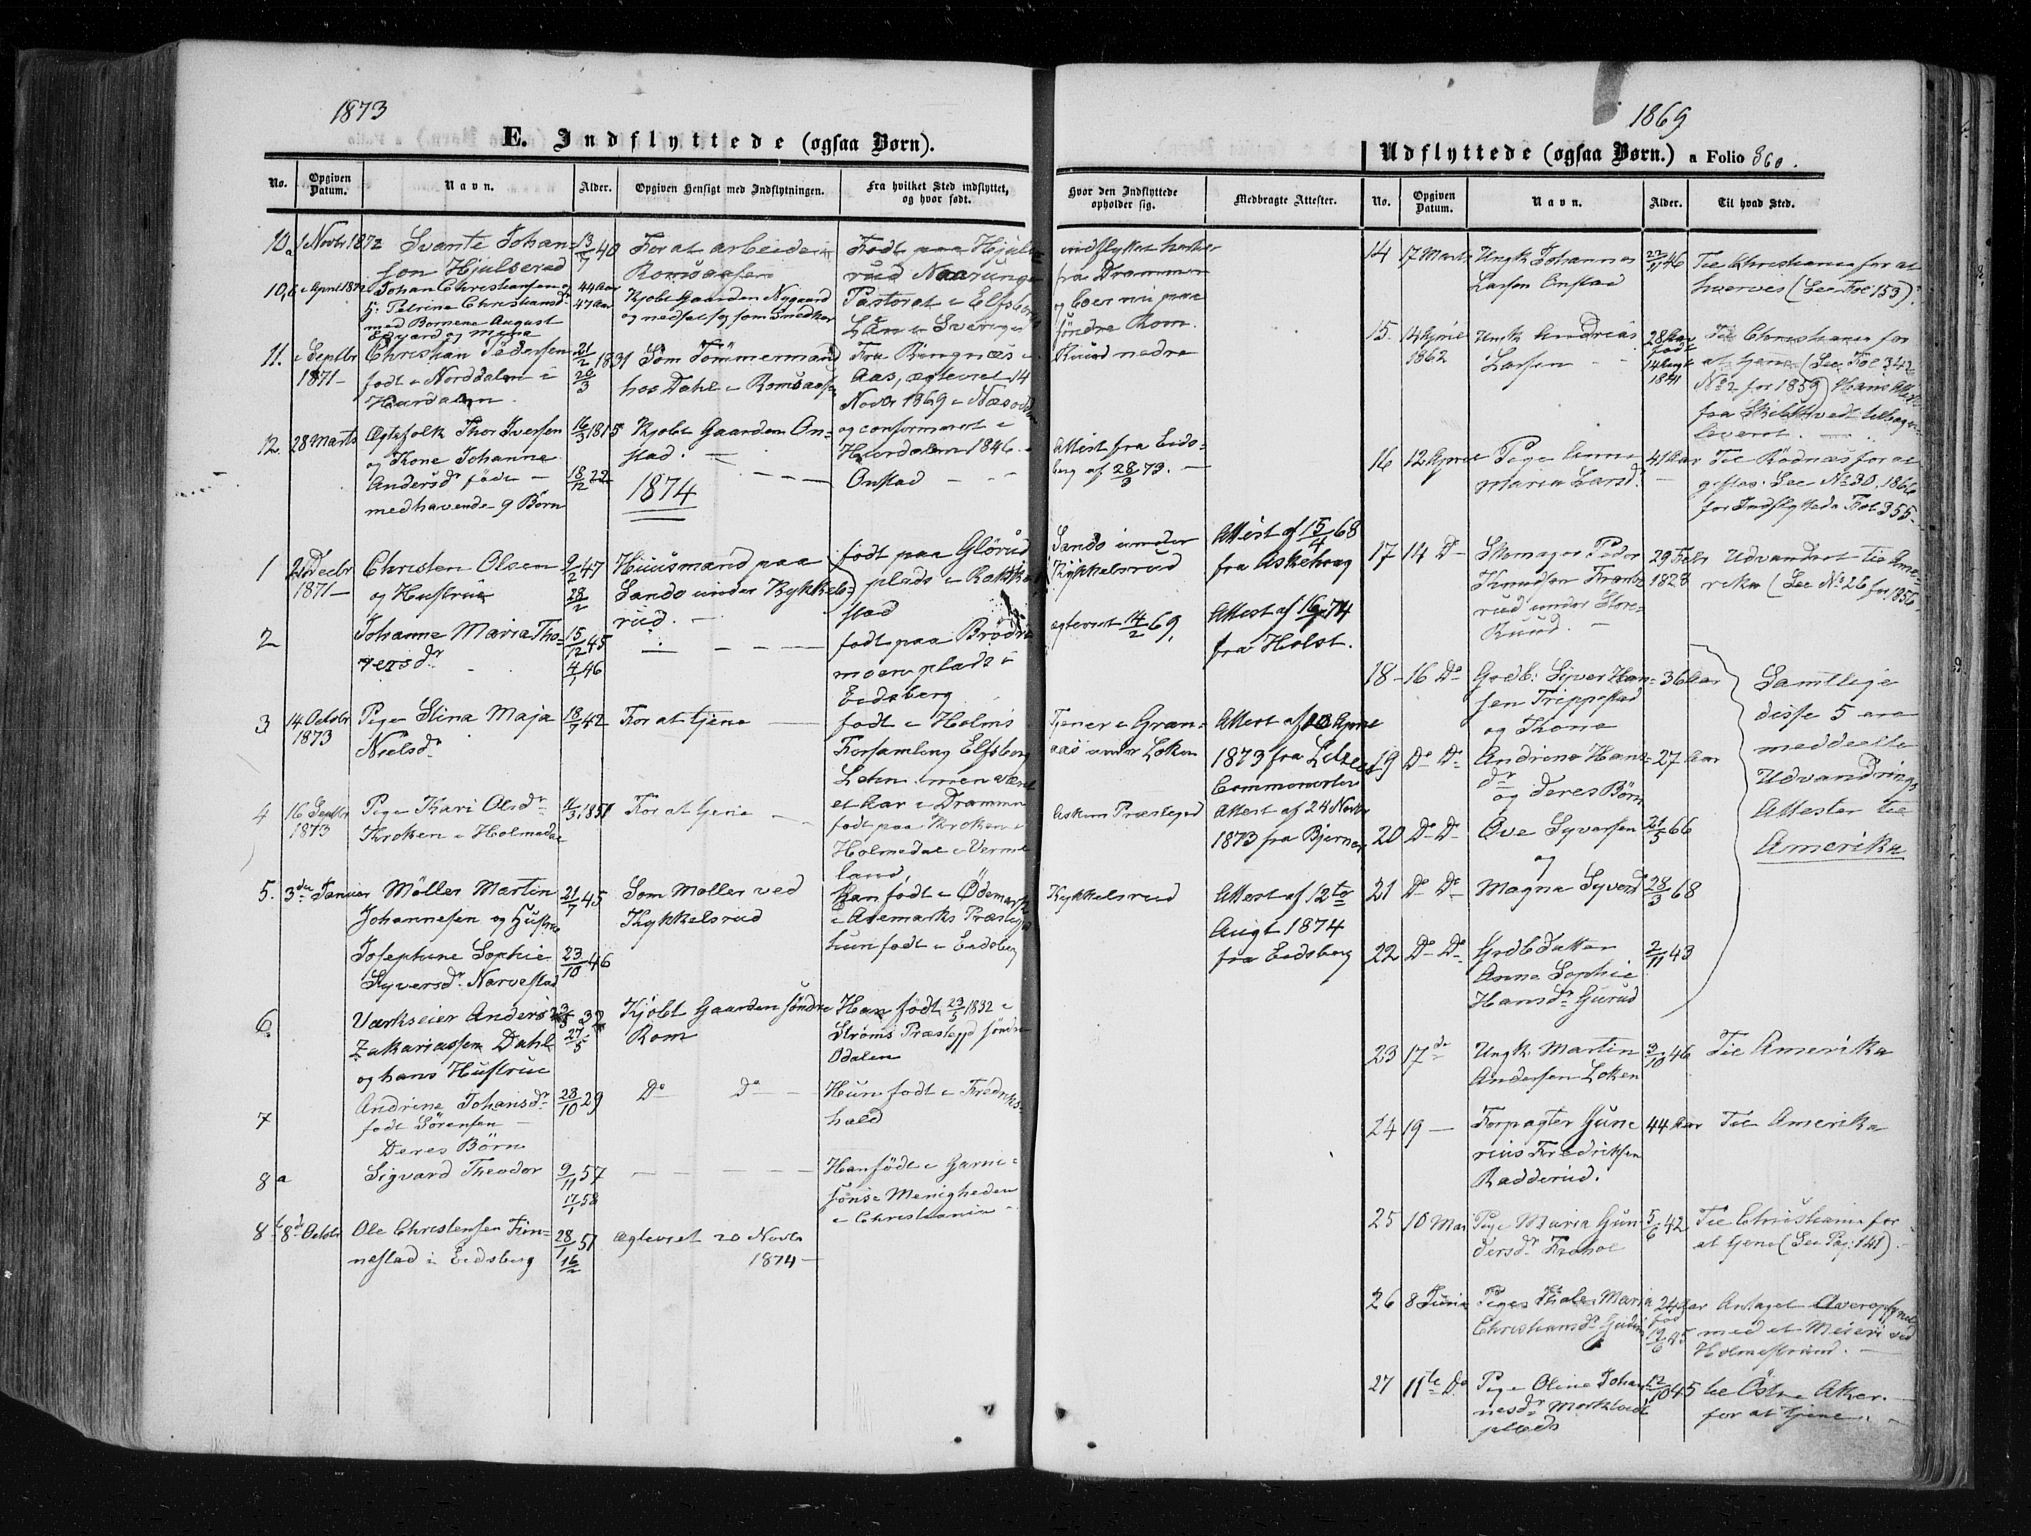 1873
E. Indflyttede (ogsaa Børn).
No.
Opgiven Datum.
Navn.
Alder.
Opgiven Hensigt med Indflytningen.
Fra hvilket Sted indflyttet, og hvor født.
10a 1 Novbr 1872 Svante Johan- 13/7 40 For at arbeide i Født paa Hjulse-
son Hjulserud Romsaasen rud Naarunga
10,b April 1872 Johan Christiansen og 44 Aar Kjøbt Gaarden Nygaard Pastorat i Elfsborgs
H: Petrine Christiansdr 47 Aar og nedsat sig som Smedker Län i Sverige
med Børnene August
Edvard og Mina
11. Septbr Christian Pedersen 21/2 1831 Som Tømmermand Fra Ringnæs i
1871 født i Norddalen i 20/3 hos Dahl i Romsaasen Aas, ægteviet 14
Hurdalen. Novbr 1869 i Næsodden
12. 28 Marts Ægtefolk Thor Iversen 16/3 1815 Kjøbt Gaarden On- og confirmeret i
og Kone Johanne stad. Hurdalen 1846.
Andersdr født 18/12 22 Onstad
medhavende 9 Børn
1874
1 2 Decbr Christen Olsen 9/2 47 Huusmand paa født paa Glørud
1871 og Hustrue 28/2 Sando under Kykkels- plads i Rakke-
rud. stad
2 Johanne Maria Tho- 15/12 45 født paa Brødre
versdr 4/1 46 moen plads i
Eidsberg
3 14 Octobr Pige Stina Maja 18/7 42 For at tjene født i Holms
1873 Nielsdr Forsamling Elfsborg
Lehn men været
4 16 Septbr Pige Kari Olsdr 11/3 1851 For at tjene et Aar i Drammen
1873 Kroken i Holmedal født paa Kroken i
Holmedal i Verme-
land,
5. 3die Januar Møller Martin 21/7 45 Som Møller ved Han født i Ødemark
Johannesen og Hustrue Kykkelsrud i Aremarks Præstegd
Josephine Sophie 23/10 46 hun født i Eidsberg
Syversdr Narvestad
6. Værkseier Anders 32 Kjøbt Gaarden søndre Han født 23/5 1832 i
Zakariassen Dahl 27/5 Rom Strøms Præstegd søndre
og hans Hustrue Odalen
7 Andrine Johansdr 28/10 29 Do Do Hun født i Fredriks-
født Sørensen hald
Deres Børn
8a Sigvard Theodor 9/11 57 Han født i Garni-
17/1 58 sons Menigheden
i Christiania
8b 8de Octobr Ole Christensen Fin- 28/1 51 ægteviet 20 Novbr
nestad i Eidsberg 16/2 1874
Hvor den Indflyttede opholder sig.
Medbragte Attester.
indflyttet herher
fra Drammen
og boer nu paa
søndre Rom.
Ruud nedre
Attest fra Eids-
berg af 28/3 73.
Sando under Attest af 15/4 68
Kykkelsrud fra Askehoug
ægteviet 14/2 69, Attest af 16/7 74
fra Holst.
Tjener i Græn- Attest af 10 April
aas under Løken 1873 fra
Askim Præstegd Attest af 24 Novbr
1873 fra Bjerner
Kykkelsrud Attest af 12te
Augt 1874
fra Eidsberg
1869
Udflyttede (ogsaa Børn.) a Folio 360.
No.
Opgiven Datum.
Navn.
Alder.
Til hvad Sted.
14 17 Marts Ungk. Johannes 27/11 46 Til Christiania for at
Larsen Onstad hverves (See Fol 153).
15. 14 April Ungk Andreas 28 Aar Til Christiania for
1862 Larsen født at tjene (See Fol 342
14 Augt No 2 for 1859) Hans Attest
1841 fra Skibthvedt tilbage-
leveret.
16 12 April Pige Anne 41 Aar Til Rødnæs for at
Maria Larsd. giftes. See No 30, 1866
for Indflyttede Fol 355
17 14 Do Skomager Peder 29 Febr Udvandret til Ame-
Knudsen 1828 rika (See No 26 for 1856
rud under Store-
Ruud.
18 16 Do Grdb: Syver Han- 36 Aar Samtlige
sen Trippestad disse 5 ere
og Kone meddeelte
19 Do Do Andrine Hans- 27 Aar Udvandrings
dr Attester til
og deres Børn Amerika
20 Do Do Ove Syversen 21/5 66
og
21 Do Do Magna Syversd 28/3 68
22 Do Do Grdb Datter 2/11 43
Anne Sophie
Hansdr Gurud
23 17de Ungk. Martin 3/10 46 Til Amerika
Andersen Løken
24 19 Forpagter Gune 44 Aar Til Amerika
rius Fredriksen
Radderud.
25 10 Mai Pige Maria Gun 5/6 42 Til Christiania for
dersdr Frahol at tjene (See Pag: 141).
26 8 Juni Pige Thale Maria 24 Aar Antaget
Christiansdr fød med et Meieri ved
19/6 45 Holmestrand.
27 11te Do Pige Oline Johan 12/10 45 til Østre Aker
nesdr for at tjene.
plads